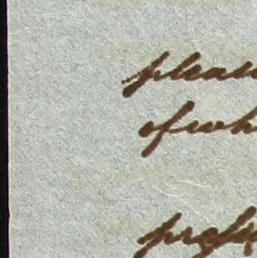 pleas
of wh
prof